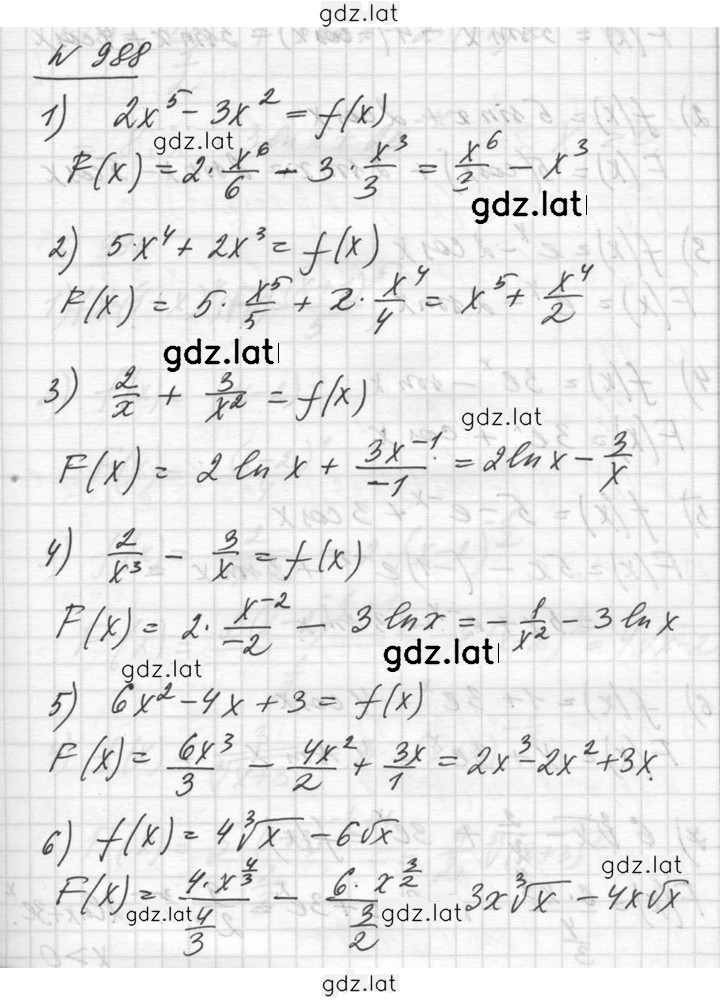 gdz.lat
N 988
1) 2x⁵ - 3x² = f(x)
gdz.lat
F(x) = 2 · x⁶/6 - 3 · x³/3 = x⁶/3 - x³
gdz.lat
2) 5·x⁴ + 2x³ = f(x)
F(x) = 5 · x⁵/5 + 2 · x⁴/4 = x⁵ + x⁴/2
gdz.lat
3) 2/x + 3/x² = f(x)
gdz.lat
F(x) = 2 ln x + 3x⁻¹/-1 = 2 ln x - 3/x
4) 2/x³ - 3/x = f(x)
F(x) = 2 · x⁻²/-2 - 3 ln x = - 1/x² - 3 ln x
gdz.lat
gdz.lat
5) 6x² - 4x + 3 = f(x)
F(x) = 6x³/3 - 4x²/2 + 3x/1 = 2x³ - 2x² + 3x.
6) f(x) = 4∛x - 6√x
gdz.lat
F(x) = 4·x^(4/3)/(4/3) - 6·x^(3/2)/(3/2) 3x∛x - 4x√x
gdz.lat gdz.lat
gdz.lat